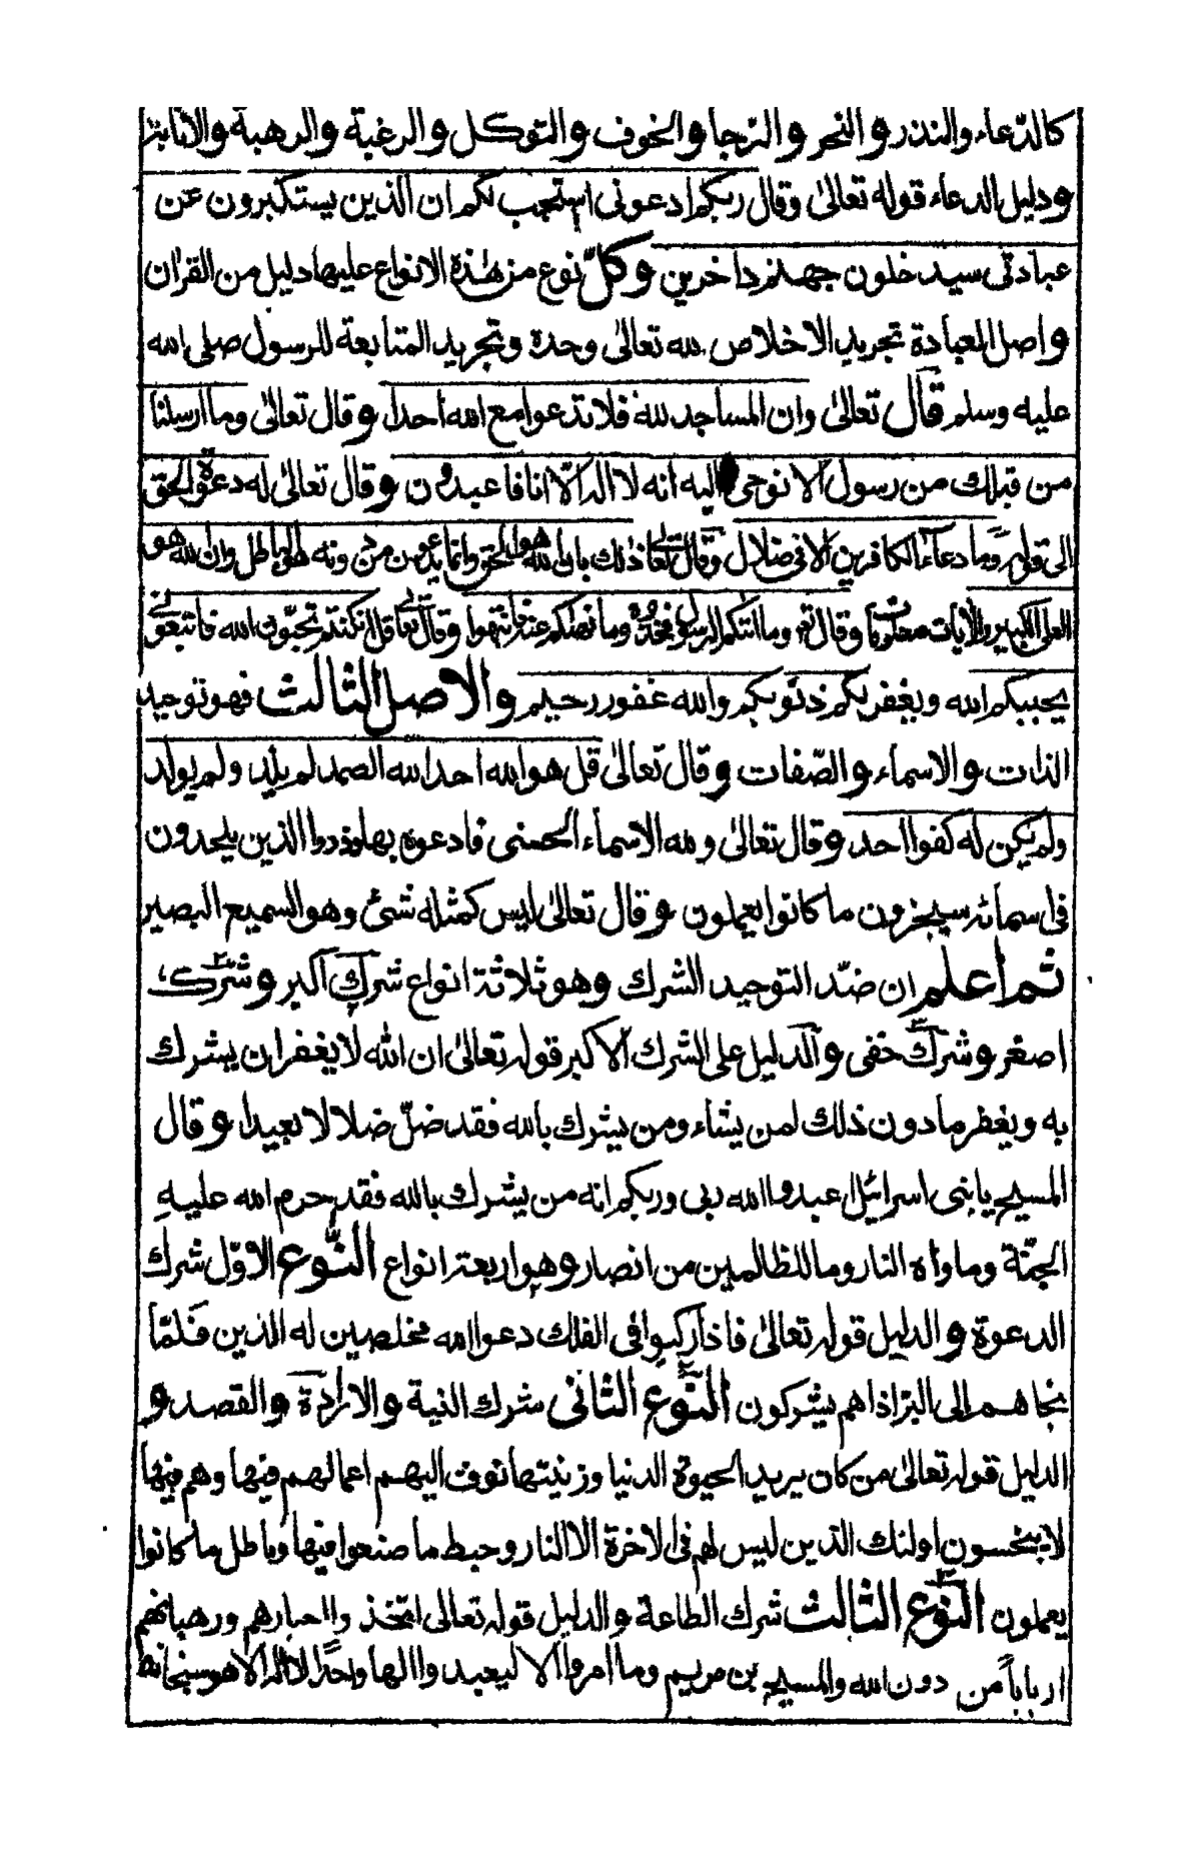 كالدّعاء والنذر والنحر والرّجا والخوف والتوكل والرغبة والرهبة والانابة
ودليل الدعاء قوله تعالىٰ وقال ربكم ادعونى استجب لكم ان الذين يستكبرون عن
عبادتى سيدخلون جهنم داخرين وكلّ نوع من هٰذه الانواع عليها دليل من القراٰن
واصل العبادة تجريد الاخلاص لله تعالىٰ وحده وتجريد المتابعة للرسول صلى الله
عليه وسلم قال تعالىٰ وان المساجد لله فلا تدعوا مع الله احدا وقال تعالىٰ وما ارسلنا
من قبلك من رسول الا نوحى اليه انه لا اله الّا انا فاعبدون وقال تعالىٰ له دعوة الحق
الى قوله وما دعاء الكافرين الا فى ضلال وقال تعالىٰ ذٰلك بان الله هو الحق وانما يدعون من دونه هو الباطل وان الله هو
العلى الكبير والاٰيات معلومة وقال تعـ وما اٰتٰكم الرسول فخذوه وما نهٰكم عنه فانتهوا وقال تعالىٰ قل ان كنتم تحبّون الله فاتبعونى
يحببكم الله ويغفر لكم ذنوبكم والله غفور رحيم والاصل الثالث فهو توحيد
الذات والاسماء والصّفات وقال تعالىٰ قل هو الله احد الله الصمد لم يلد ولم يولد
ولم يكن له كفوا احد وقال تعالىٰ ولله الاسماء الحسنى فادعوه بها وذروا الذين يلحدون
فى اسمائه سيجزون ما كانوا يعملون وقال تعالىٰ ليس كمثله شئ وهو السميع البصير
ثم اعلم ان ضدّ التوحيد الشرك وهو ثلاثة انواع شرك اكبر وشرك
اصغر وشرك خفى والدليل على الشرك الاكبر قوله تعالىٰ ان الله لا يغفر ان يشرك
به ويغفر مادون ذلك لمن يشاء ومن يشرك بالله فقد ضلّ ضلالا بعيدا وقال
المسيح يا بنى اسرائيل اعبدوا الله ربى وربكم انه من يشرك بالله فقد حرم الله عليه
الجنّة وماواه النار وما للظالمين من انصار وهو اربعة انواع النّوع الاوّل شرك
الدعوة والدليل قوله تعالىٰ فاذا ركبوا فى الفلك دعوا الله مخلصين له الدين فلمّا
نجاهم الى البرّ اذا هم يشركون النّوع الثانى شرك النية والارادة والقصد و
الدليل قوله تعالىٰ من كان يريد الحيوة الدنيا وزينتها نوف اليهم اعمالهم فيها وهم فيها
لا يبخسون اولئك الذين ليس لهم فى الاخرة الا النار وحبط ما صنعوا فيها وباطل ما كانوا
يعملون النّوع الثالث شرك الطاعة والدليل قوله تعالى اتخذ وا احبارهم ورهبانهم
ارباباً من دون الله والمسيح بن مريم وما امروا الا ليعبدوا الها واحدا لا اله الا هو سبحانه